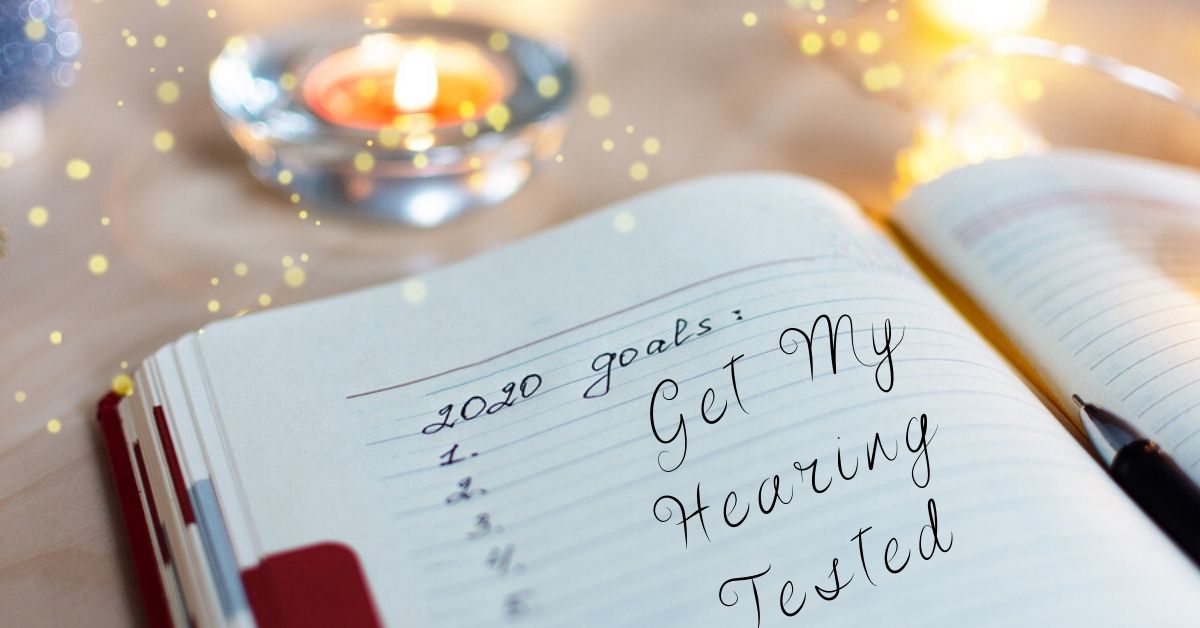 2020 goals:
1.
2.
3.
4.
5.
Get My
Hearing
Tested